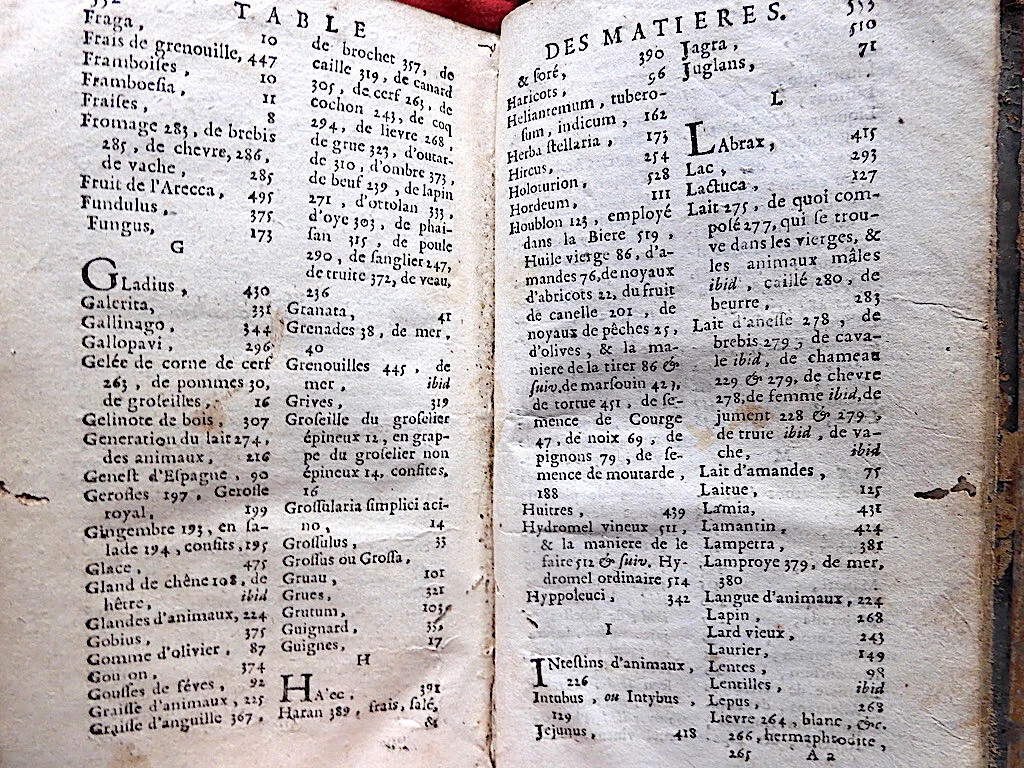 TABLE
Fraga, 10
Frais de grenouille, 447
Framboises, 10
Framboesia, 11
Fraises, 8
Fromage 283, de brebis
285, de chevre, 286,
de vache, 285
Fruit de l'Arecca, 495
Fundulus, 375
Fungus, 173
G
GLadius, 430
Galerita, 331
Gallinago, 344
Gallopavi, 296
Gelée de corne de cerf
263, de pommes 30,
de groseilles, 16
Gelinote de bois, 307
Generation du lait 274,
des animaux, 216
Genest d'Espagne, 90
Gerofles 197, Gerofle
royal, 199
Gingembre 193, en sa-
lade 194, confits, 195
Glace, 475
Gland de chêne 108, de
hêtre, ibid
Glandes d'animaux, 224
Gobius, 375
Gomme d'olivier, 87
Gou on, 374
Gousses de féves, 92
Graisse d'animaux, 225
Graisse d'anguille 367,
de brochet 357, de
caille 319, de canard
305, de cerf 263, de
cochon 243, de coq
294, de lievre 268,
de grue 323, d'outar-
de 310, d'ombre 373,
de beuf 239, de lapin
271, d'ortolan 333,
d'oye 303, de phai-
san 315, de poule
290, de sanglier 247,
de truite 372, de veau,
236
Granata, 41
Grenades 38, de mer,
40
Grenouilles 445, de
mer, ibid
Grives, 319
Groseille du groselier
épineux 12, en grap-
pe du groselier non
épineux 14, confites,
16
Grossularia simplici aci-
no, 14
Grossulus, 33
Grossus ou Grossa,
Gruau, 101
Grues, 321
Grutum, 103
Guignard,
Guignes, 17
H
HA'ec, 391
Haran 389, frais, salé,
&
DES MATIERES.
& soré, 390
Haricots, 96
Heliantemum, tubero-
sum, indicum, 162
Herba stellaria, 173
Hircus, 254
Holoturion, 528
Hordeum, 111
Houblon 123, employé
dans la Biere 519,
Huile vierge 86, d'a-
mandes 76, de noyaux
d'abricots 22, du fruit
de canelle 201, de
noyaux de pêches 25,
d'olives, & la ma-
niere de la tirer 86 &
suiv. de marsouin 423,
de tortue 451, de se-
mence de Courge
47, de noix 69, de
pignons 79, de se-
mence de moutarde,
188
Huitres, 439
Hydromel vineux 511,
& la maniere de le
faire 512 & suiv. Hy-
dromel ordinaire 514
Hyppoleuci, 342
I
INtestins d'animaux,
226
Intubus, ou Intybus,
129
Jejunus, 418
Jagra, 510
Juglans, 71
L
LAbrax, 415
Lac, 293
Lactuca, 127
Lait 275, de quoi com-
posé 277, qui se trou-
ve dans les vierges, &
les animaux mâles
ibid, caillé 280, de
beurre, 283
Lait d'anesse 278, de
brebis 279, de cava-
le ibid, de chameau
229 & 279, de chevre
278, de femme ibid, de
jument 228 & 279,
de truie ibid, de va-
che, ibid
Lait d'amandes, 75
Laitue, 125
Lamia, 431
Lamantin, 424
Lampetra, 381
Lamproye 379, de mer,
380
Langue d'animaux, 224
Lapin, 268
Lard vieux, 243
Laurier, 149
Lentes, 98
Lentilles, ibid
Lepus, 263
Lievre 264, blanc, &c.
266, hermaphrodite,
265
A a